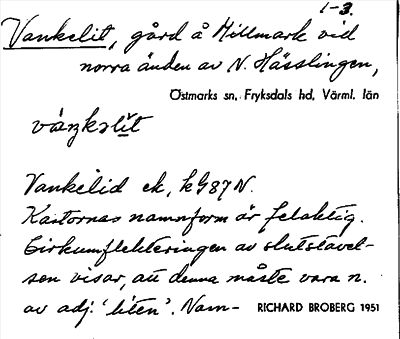 1-3.
Vankelit, gård å Hillmark vid
norra änden av N. Hässlingen,
Östmarks sn, Fryksdals hd, Värml. län
Vankelid ek, kG87N.
Kartornas namnform är felaktig.
Cirkumflekteringen av slutstavel-
sen visar, att denna måste vara n.
av adj. 'liten'. Nam- RICHARD BROBERG 1951